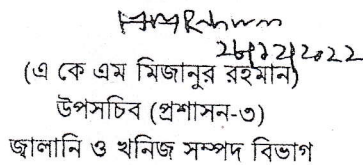 26/12/2022
(এ কে এম মিজানুর রহমান)
উপসচিব (প্রশাসন-৩)
জ্বালানি ও খনিজ সম্পদ বিভাগ